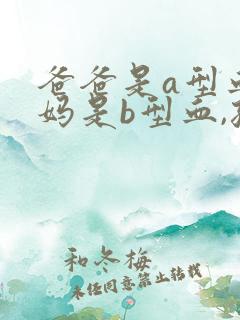 爸爸是a型血
妈是b型血,
和冬梅
未经同意禁止转载